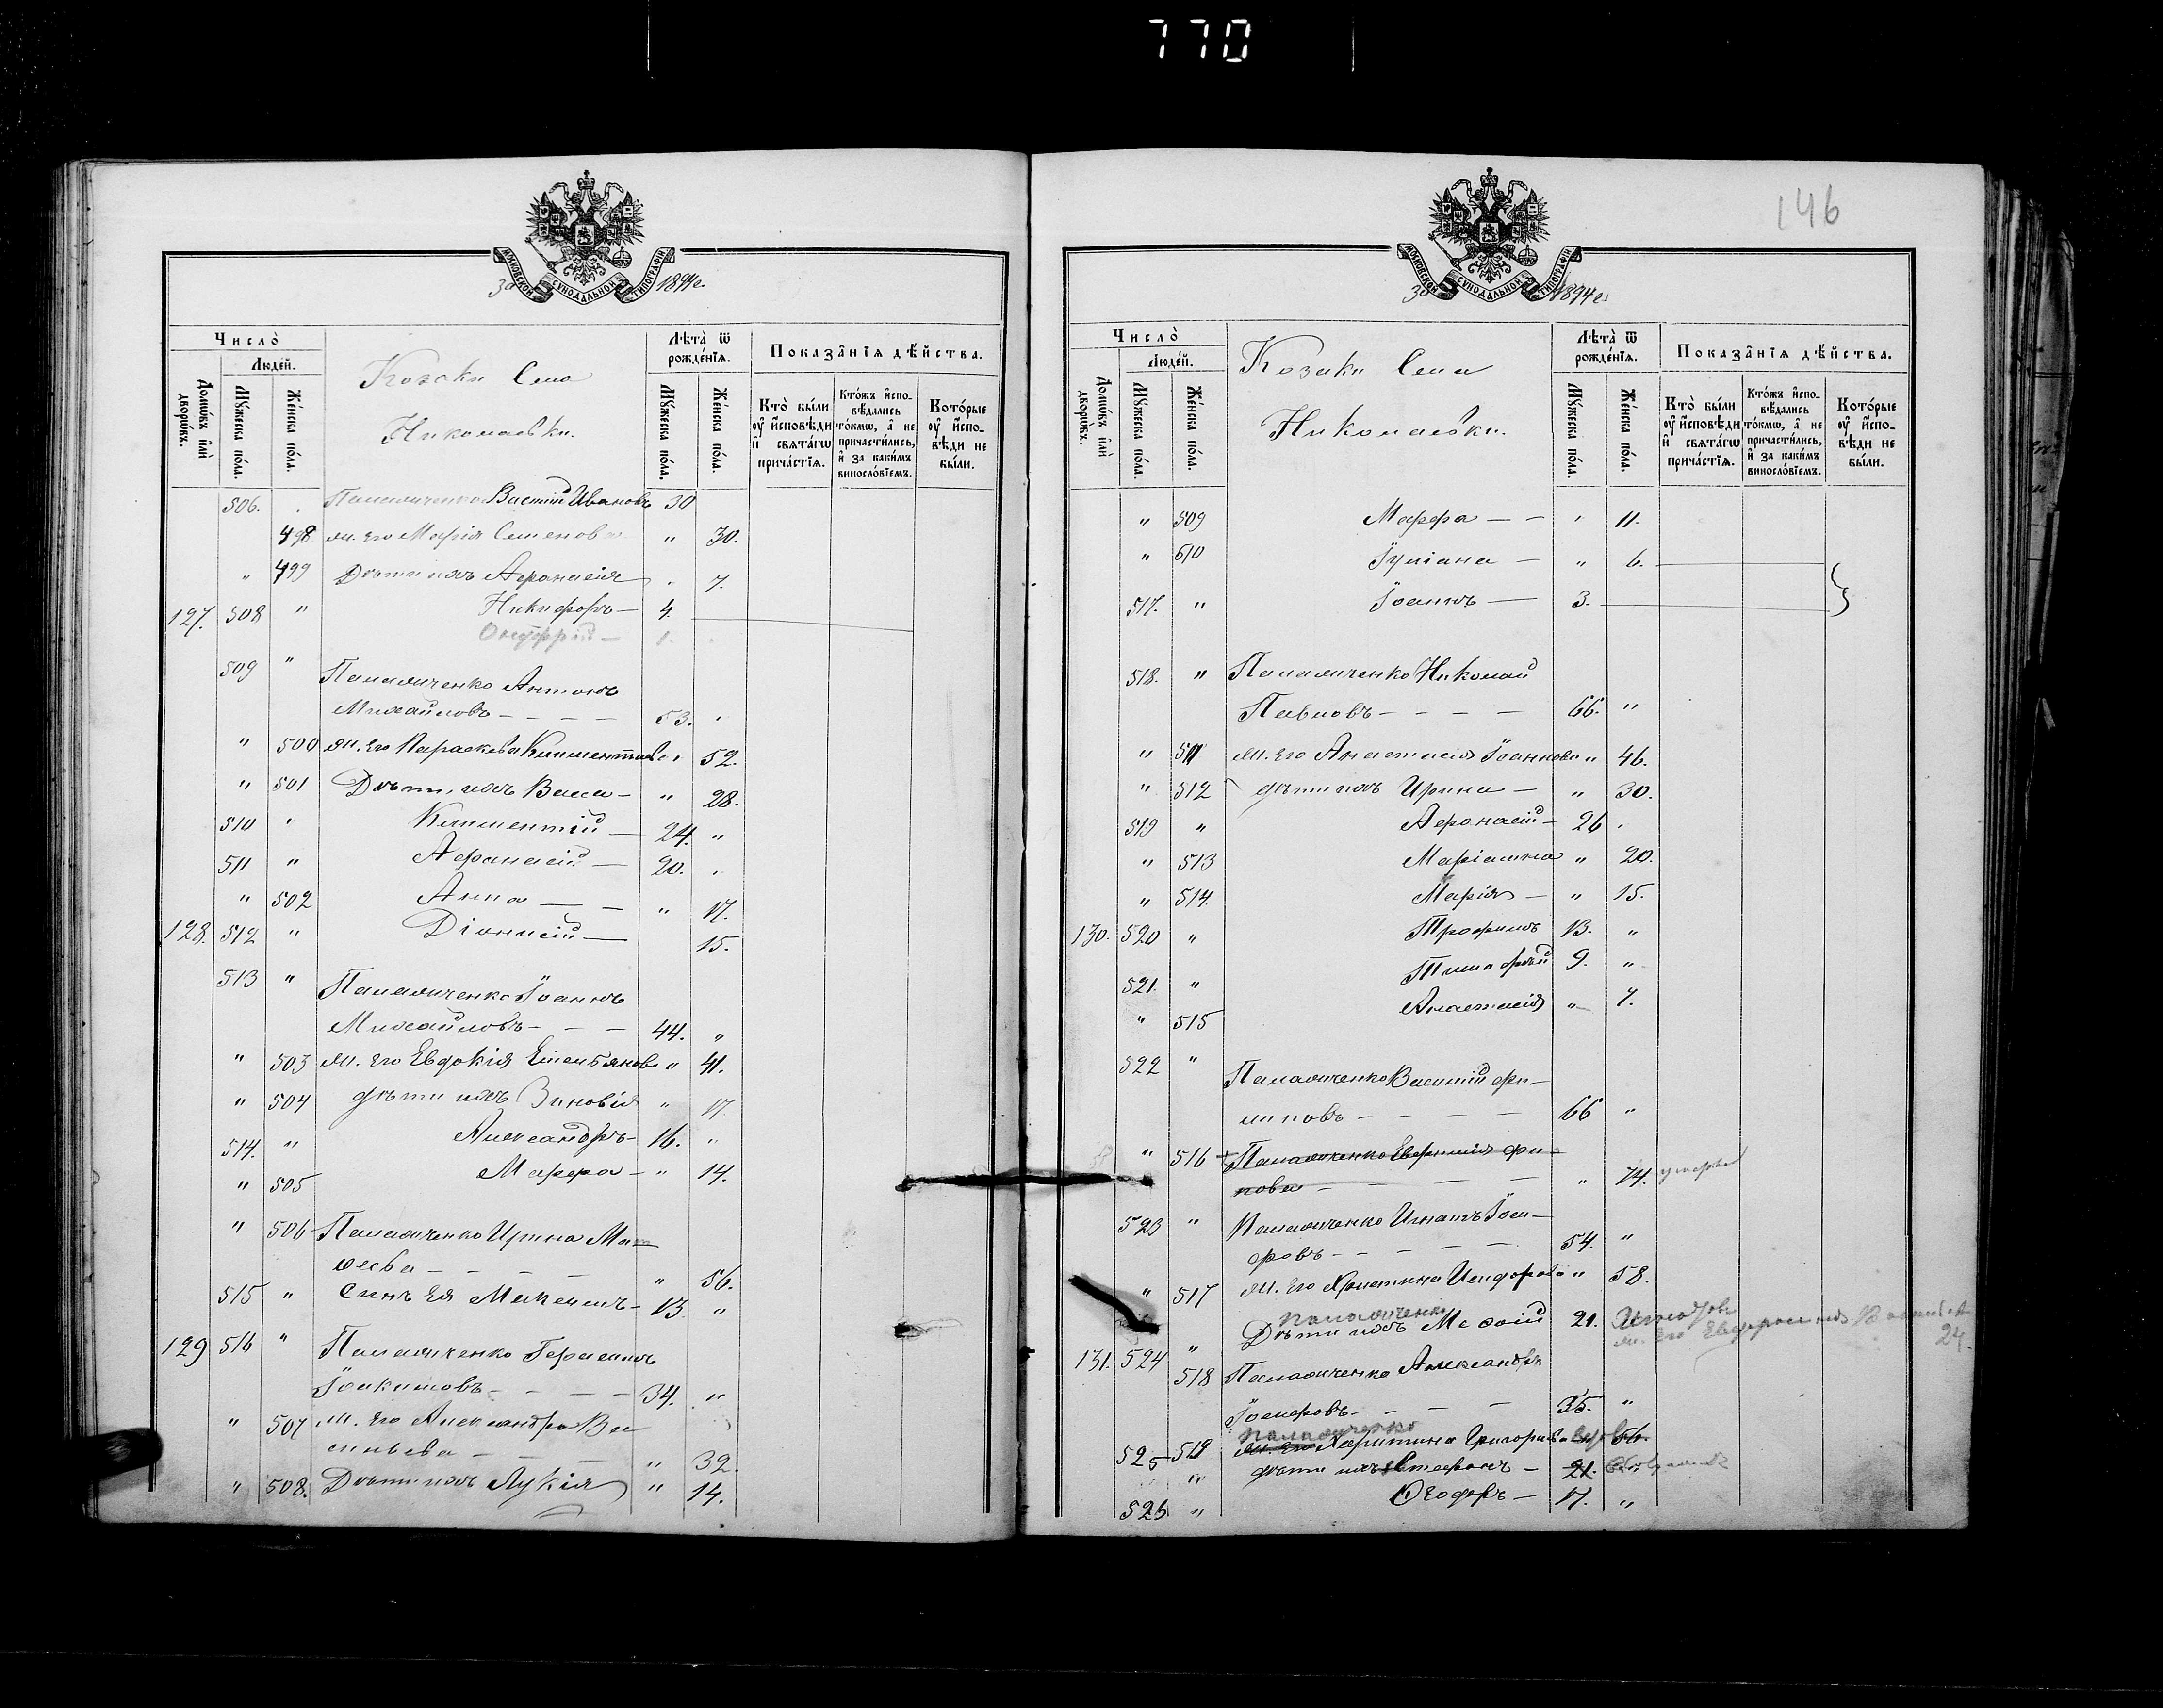 770
МОСКОВСКОЙ СУНОДАЛЬНОЙ ТИПОГРАФІИ
За 1894 г.
Число̀
Людей.
Домѡ́въ и҆лѝ дворѡ́въ.
Мꙋ́жеска по́ла.
Же́нска по́ла.
Козаки Села
Николаевки.
Лѣта̀ ѿ рожде́нїѧ.
Мꙋ́жеска по́ла.
Же́нска по́ла.
Показа̑нїѧ дѣ́йства.
Кто̀ бы́ли оу҆ и҆сповѣ́ди и҆ свѧта́гѡ прича́стїѧ.
Кто́жъ и҆спо-вѣ́дались то́кмѡ, а҆ не причасти́лись, и҆ за каки́мъ винослѡ́вїемъ.
Кото́рые оу҆ и҆спо-вѣ́ди не бы́ли.
506. Паламаченко Василій Ивановъ 30
498 ж. его Марія Семенова " 30.
" 499 Дѣти ихъ Афанасія " 7.
127. 508 " Никифоръ — 4.
Онуфрій — 1.
509 " Паламаченко Антонъ
Михайловъ — — — — 53. "
" 500 ж. его Параскева Климентова " 52.
" 501 Дѣти ихъ Васса — " 28.
510 " Климентій — 24. "
511 " Афанасій — 20. "
" 502 Анна — — " 17.
128. 512 " Діонисій — 15.
513 " Паламаченко Іоаннъ
Михайловъ — — — 44. "
" 503 ж. его Евдокія Емельянова " 41.
" 504 дѣти ихъ Зиновія " 17.
514. " Александръ — 16. "
" 505 Марфа — " 14.
" 506 Паламаченко Ирина Мат-
ѳеева — — — — " 56.
515 " Сынъ ея — 13 "
129 516 " Паламаченко Герасимъ
Іоакимовъ — — — — 34. "
" 507 ж. его Александра Ва-
сильева — — " 32.
" 508. Дѣти ихъ Лукія " 14.
146
МОСКОВСКОЙ СУНОДАЛЬНОЙ ТИПОГРАФІИ
За 1894 г.
Число̀
Людей.
Домѡ́въ и҆лѝ дворѡ́въ.
Мꙋ́жеска по́ла.
Же́нска по́ла.
Козаки Села
Николаевки.
Лѣта̀ ѿ рожде́нїѧ.
Мꙋ́жеска по́ла.
Же́нска по́ла.
Показа̑нїѧ дѣ́йства.
Кто̀ бы́ли оу҆ и҆сповѣ́ди и҆ свѧта́гѡ прича́стїѧ.
Кто́жъ и҆спо-вѣ́дались то́кмѡ, а҆ не причасти́лись, и҆ за каки́мъ винослѡ́вїемъ.
Кото́рые оу҆ и҆спо-вѣ́ди не бы́ли.
" 509 Марфа — — " 11.
" 510 Іуліана — " 6.
517. " Іоаннъ — 3.
518. " Паламаченко Николай
Павловъ — — — — 66. "
" 511 ж. его Анастасія Іоаннова " 46.
" 512 дѣти ихъ Ирина — " 30.
519 " Афонасій — 26 "
" 513 Маріамна " 20.
" 514. Марія — " 15.
130. 520 " Трофимъ 13. "
521. " Тимофей 9. "
" 515 Анастасія " 7.
522 " Паламаченко Василій Фи-
липовъ — — — — 66 "
" 516 Паламаченко Евфимія Фи-
пова — — — — " 74. умерла
523 " Паламаченко Игнатъ Іоси-
фовъ — — — — 54. "
" 517 ж. его Христина Исидорова " 58.
Паламаченко
131. 524 " Дѣти ихъ 21.
ж. его Евфросинія 24.
518 Паламаченко Александръ
Іосифовъ — — — — 35. "
Паламаченко
525 519 ж. его Харитина Григорьева вдова 56.
" дѣти ихъ Стефанъ — 21.
526 " Ѳеодоръ — 17. "